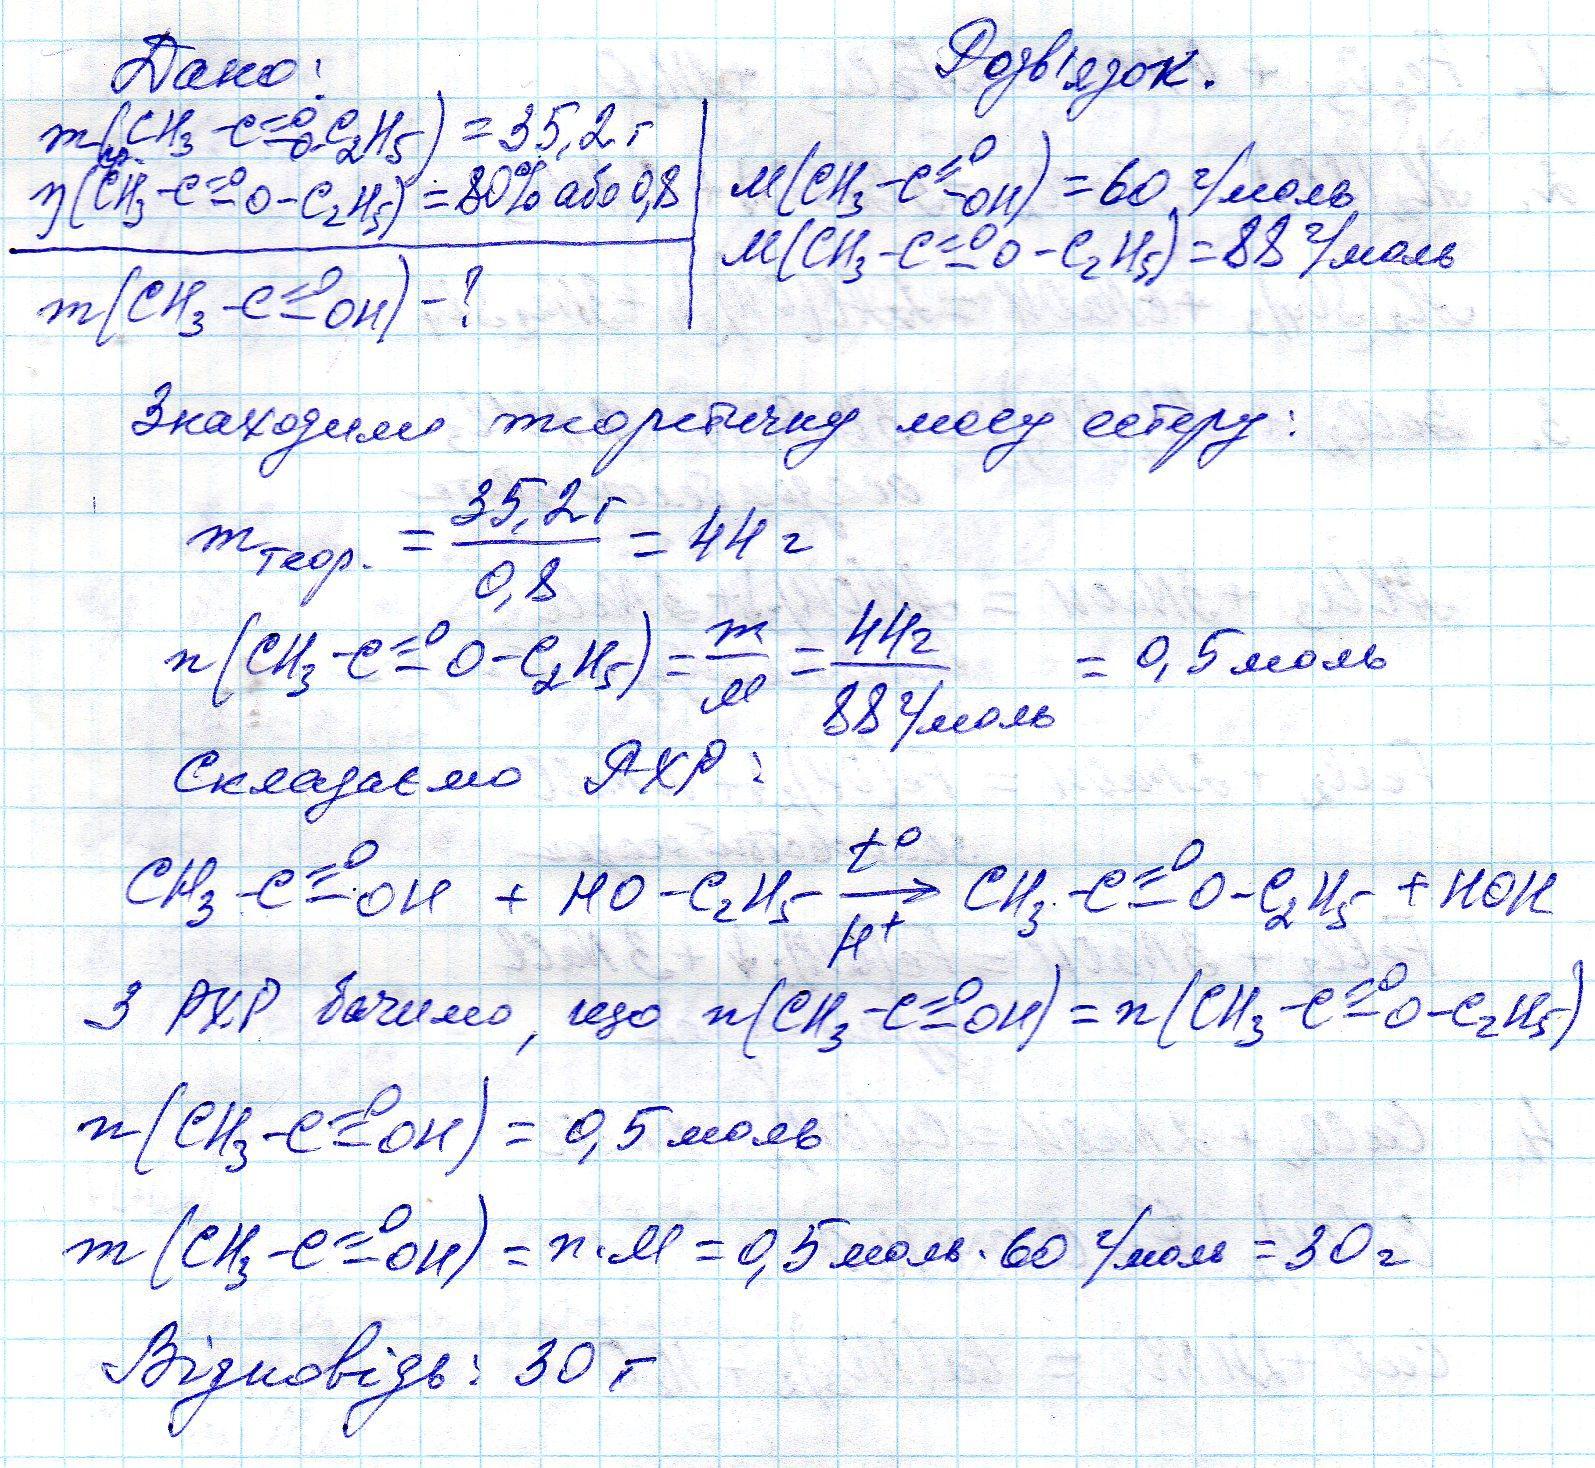 Дано:
Розв'язок.
m пр.(CH₃-C=O-O-C₂H₅) = 35,2 г
η(CH₃-C=O-O-C₂H₅) = 80% або 0,8
m(CH₃-C=O-OH) - ?
M(CH₃-C=O-OH) = 60 г/моль
M(CH₃-C=O-O-C₂H₅) = 88 г/моль
Знаходимо теоретичну масу естеру:
m теор. = 35,2 г / 0,8 = 44 г
n(CH₃-C=O-O-C₂H₅) = m/M = 44 г / 88 г/моль = 0,5 моль
Складаємо РХР:
CH₃-C=O-OH + HO-C₂H₅ →(t°, H⁺) CH₃-C=O-O-C₂H₅ + HOH
З РХР бачимо, що n(CH₃-C=O-OH) = n(CH₃-C=O-O-C₂H₅)
n(CH₃-C=O-OH) = 0,5 моль
m(CH₃-C=O-OH) = n·M = 0,5 моль · 60 г/моль = 30 г
Відповідь: 30 г